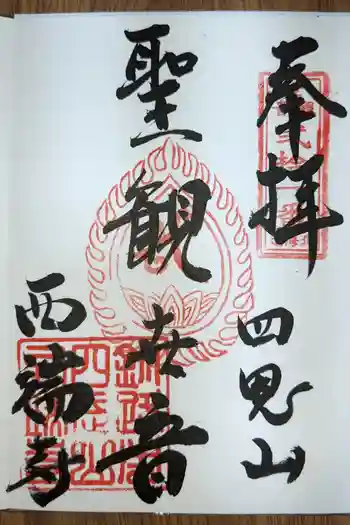 奉拝
四恩山
聖観世音
西端寺